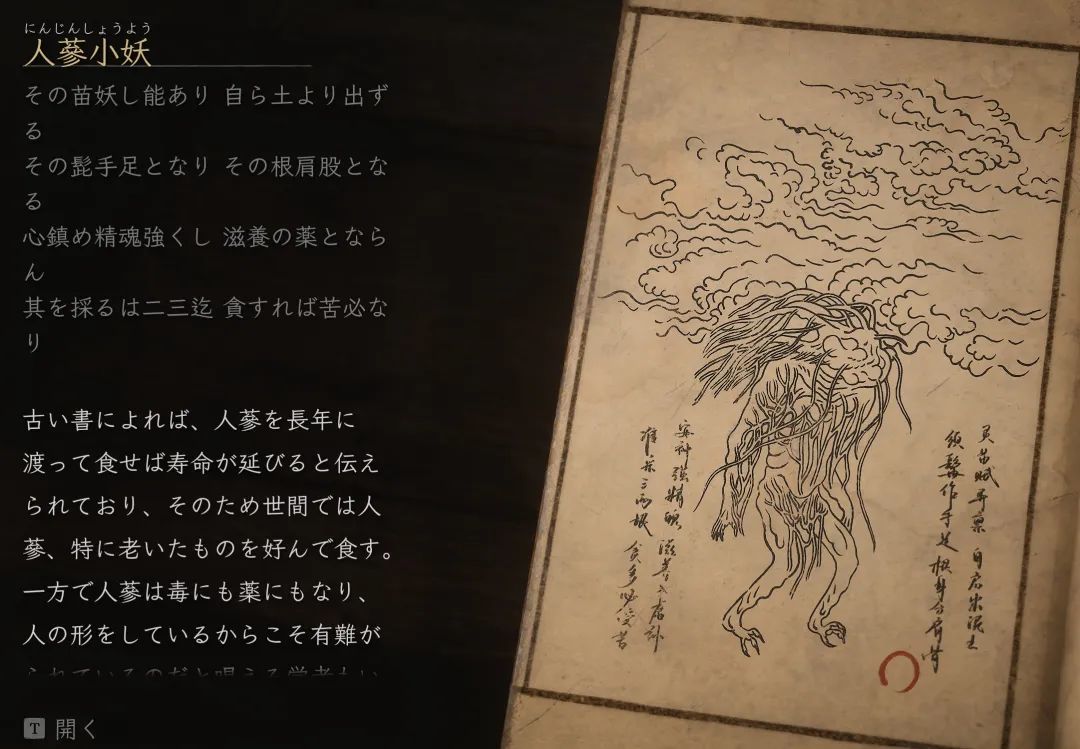 にんじんしょうよう
人蔘小妖
その苗妖し能あり 自ら土より出ず
る
その髭手足となり その根肩股とな
る
心鎮め精魂強くし 滋養の薬となら
ん
其を採るは二三迄 貪すれば苦必な
り
古い書によれば、人蔘を長年に
渡って食せば寿命が延びると伝え
られており、そのため世間では人
蔘、特に老いたものを好んで食す。
一方で人蔘は毒にも薬にもなり、
人の形をしているからこそ有難が
られているのだと唱える学者もい
T 開く
自
須鬚作手足
安神強精魄
貪多必受苦